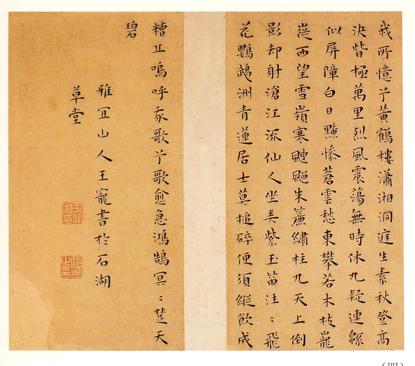 我所憶兮黃鶴樓瀟湘洞庭生素秋登高
決眥極萬里烈風震蕩無時休九疑連緜
似屏障白日黯慘蒼雲愁東攀若木枝巃
嵸西望雪嶺寒颼飀朱簾繡柱九天上倒
影却射滄江流仙人坐弄紫玉笛飛
花鸚鵡洲青蓮居士莫搥碎便須縱飲成
糟丘嗚呼我歌兮歌愈急鴻鵠冥〻楚天
碧
雅宜山人王寵書於石湖
草堂